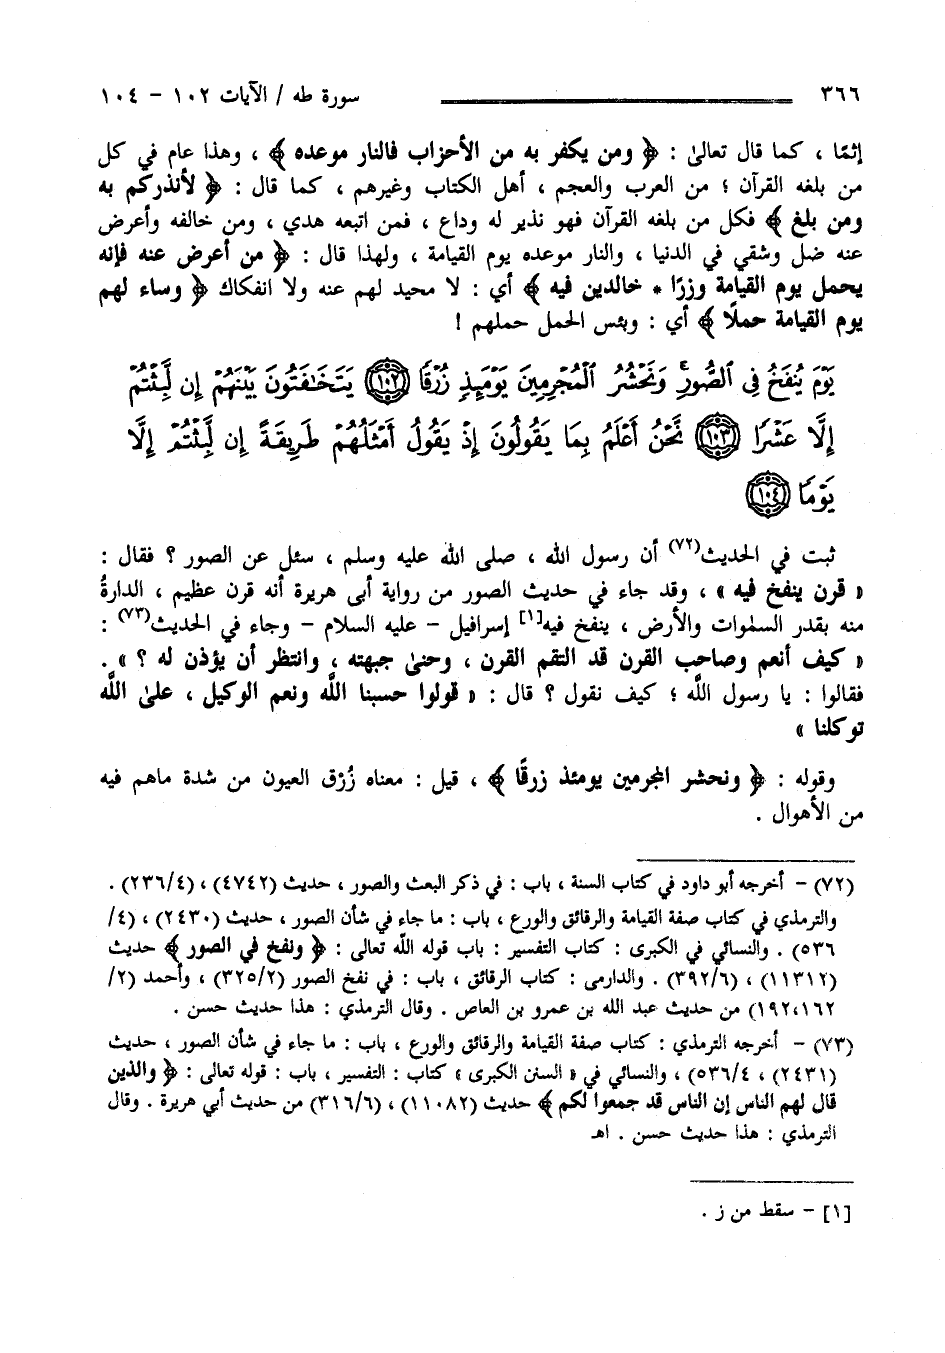 ٣٦٦ سورة طه / الآيات ١٠٢ - ١٠٤
إثمًا ، كما قال تعالىٰ : ﴿ ومن يكفر به من الأحزاب فالنار موعده ﴾ ، وهذا عام في كل
من بلغه القرآن ؛ من العرب والعجم ، أهل الكتاب وغيرهم ، كما قال : ﴿ لأنذركم به
ومن بلغ ﴾ فكل من بلغه القرآن فهو نذير له وداع ، فمن اتبعه هدي ، ومن خالفه وأعرض
عنه ضل وشقي في الدنيا ، والنار موعده يوم القيامة ، ولهذا قال : ﴿ من أعرض عنه فإنه
يحمل يوم القيامة وزرًا * خالدين فيه ﴾ أي : لا محيد لهم عنه ولا انفكاك ﴿ وساء لهم
يوم القيامة حملًا ﴾ أي : وبئس الحمل حملهم !
يَوْمَ يُنفَخُ فِي ٱلصُّورِ ۚ وَنَحْشُرُ ٱلْمُجْرِمِينَ يَوْمَئِذٍ زُرْقًا ﴿١٠٢﴾ يَتَخَٰفَتُونَ بَيْنَهُمْ إِن لَّبِثْتُمْ
إِلَّا عَشْرًا ﴿١٠٣﴾ نَّحْنُ أَعْلَمُ بِمَا يَقُولُونَ إِذْ يَقُولُ أَمْثَلُهُمْ طَرِيقَةً إِن لَّبِثْتُمْ إِلَّا
يَوْمًا ﴿١٠٤﴾
ثبت في الحديث(٧٢) أن رسول الله ، صلى الله عليه وسلم ، سئل عن الصور ؟ فقال :
« قرن ينفخ فيه » ، وقد جاء في حديث الصور من رواية أبى هريرة أنه قرن عظيم ، الدارةُ
منه بقدر السمٰوات والأرض ، ينفخ فيه[١] إسرافيل - عليه السلام - وجاء في الحديث(٧٣) :
« كيف أنعم وصاحب القرن قد التقم القرن ، وحنىٰ جبهته ، وانتظر أن يؤذن له ؟ » .
فقالوا : يا رسول اللَّه ؛ كيف نقول ؟ قال : « قولوا حسبنا اللَّه ونعم الوكيل ، علىٰ اللَّه
توكلنا »
وقوله : ﴿ ونحشر المجرمين يومئذ زرقًا ﴾ ، قيل : معناه زُرْق العيون من شدة ماهم فيه
من الأهوال .
(٧٢) - أخرجه أبو داود في كتاب السنة ، باب : في ذكر البعث والصور ، حديث (٤٧٤٢) ، (٢٣٦/٤) .
والترمذي في كتاب صفة القيامة والرقائق والورع ، باب : ما جاء في شأن الصور ، حديث (٢٤٣٠) ، (٤/
٥٣٦) . والنسائي في الكبرى : كتاب التفسير : باب قوله اللَّه تعالى : ﴿ ونفخ في الصور ﴾ حديث
(١١٣١٢) ، (٣٩٢/٦) . والدارمى : كتاب الرقائق ، باب : في نفخ الصور (٣٢٥/٢) ، وأحمد (٢/
١٩٢،١٦٢) من حديث عبد الله بن عمرو بن العاص . وقال الترمذي : هذا حديث حسن .
(٧٣) - أخرجه الترمذي : كتاب صفة القيامة والرقائق والورع ، باب : ما جاء في شأن الصور ، حديث
(٢٤٣١) ، ٥٣٦/٤) ، والنسائي في « السنن الكبرى » كتاب : التفسير ، باب : قوله تعالى : ﴿ والذين
قال لهم الناس إن الناس قد جمعوا لكم ﴾ حديث (١١٠٨٢) ، (٣١٦/٦) من حديث أبي هريرة . وقال
الترمذي : هذا حديث حسن . اهـ
[١] - سقط من ز .